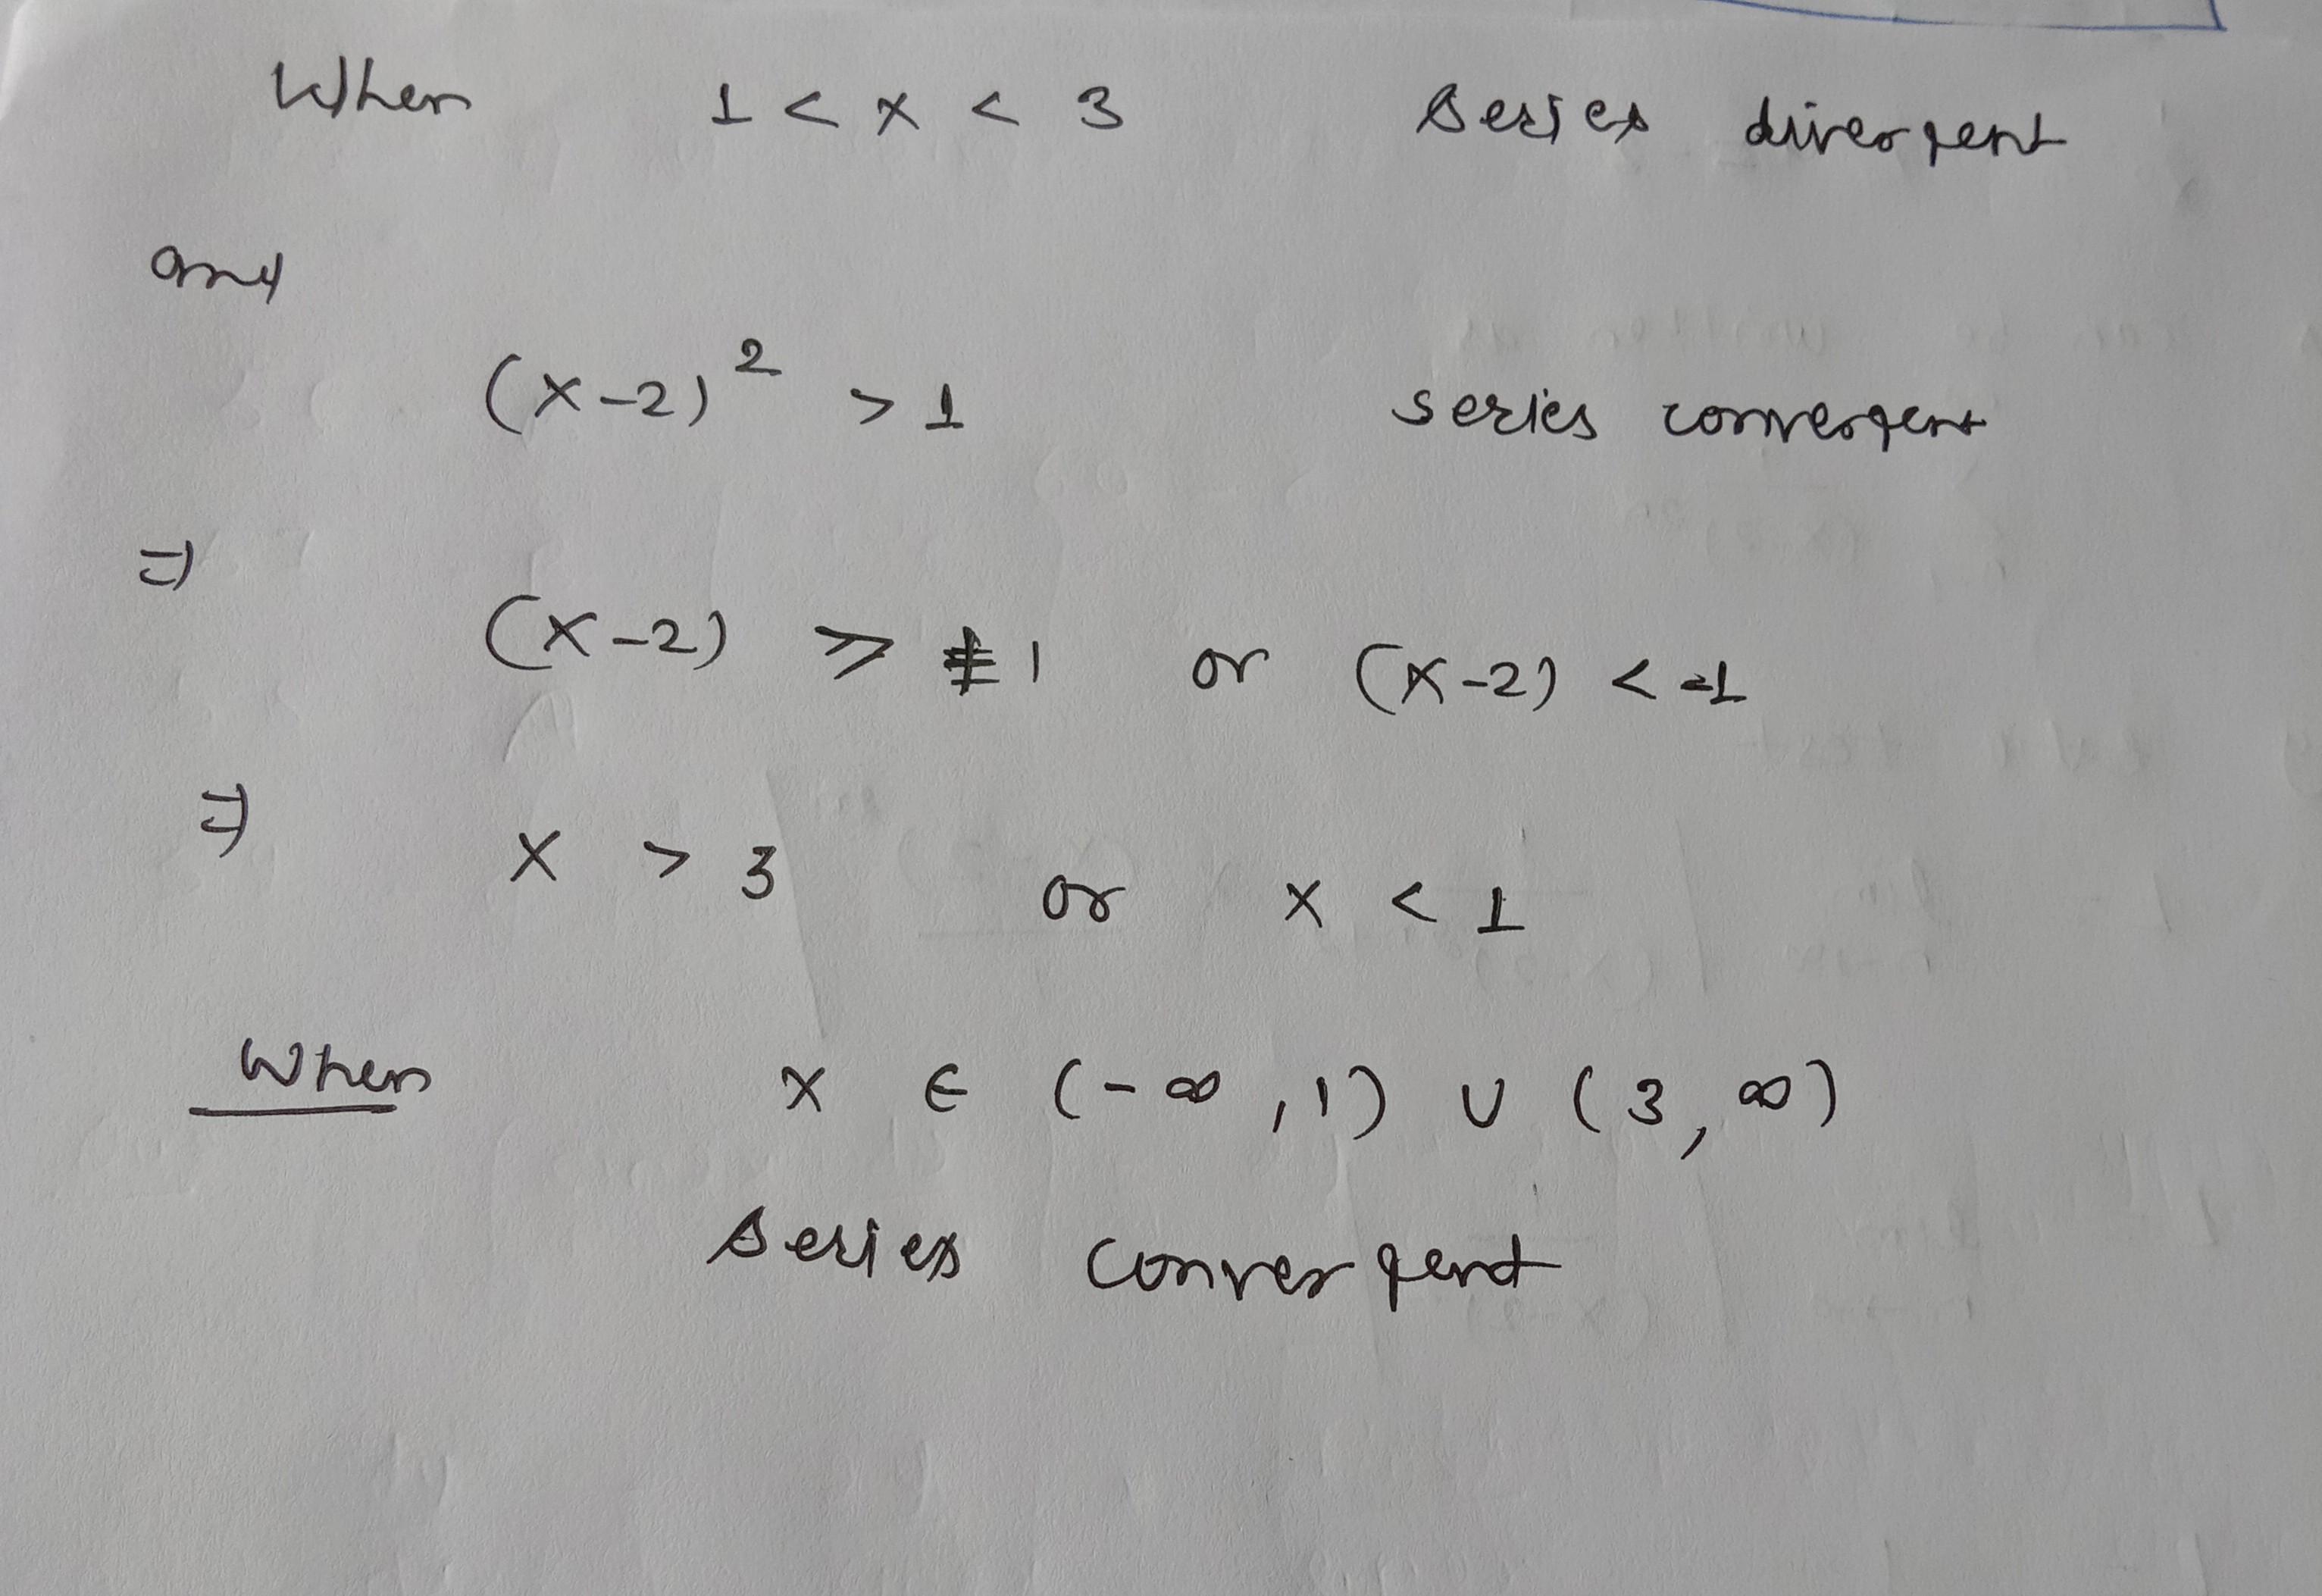 When 1 < x < 3 series divergent
and
(x-2)² > 1 series convergent
⇒
(x-2) > 1 or (x-2) < -1
⇒ x > 3 or x < 1
When x ∈ (-∞, 1) ∪ (3, ∞)
series convergent